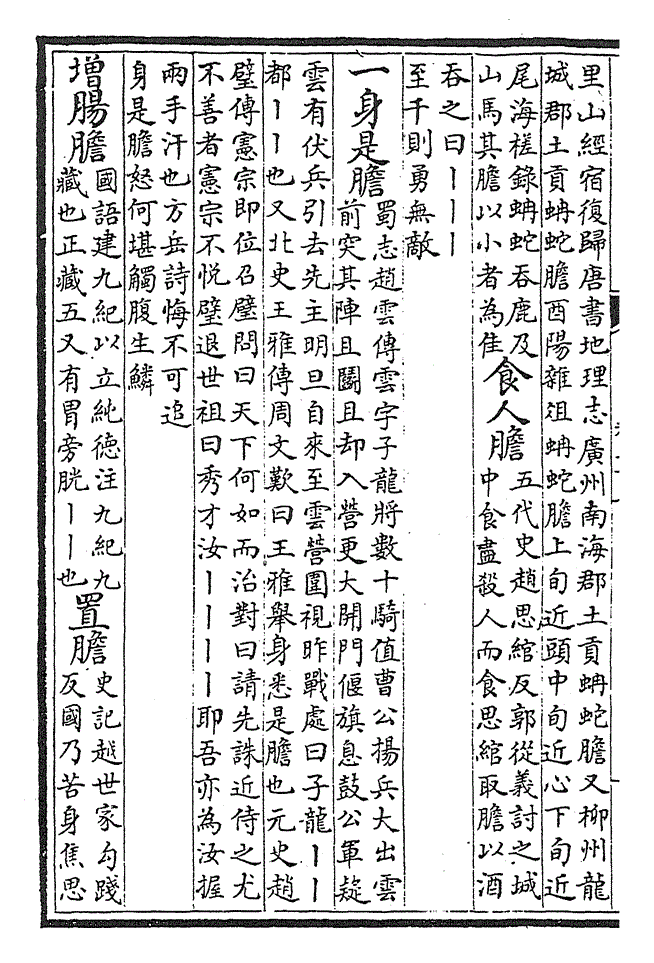 里山經宿復歸唐書地理志廣州南海郡土貢蚺蛇膽又柳州龍
城郡土貢蚺蛇膽酉陽雜俎蚺蛇膽上旬近頭中旬近心下旬近
尾海槎錄蚺蛇吞鹿及
山馬其膽以小者為佳
食人膽
五代史趙思綰反郭從義討之城
中食盡殺人而食思綰取膽以酒
吞之曰丨丨丨
至千則勇無敵
一身是膽
蜀志趙雲傳雲字子龍將數十騎值曹公揚兵大出雲
前突其陣且鬬且却入營更大開門偃旗息鼓公軍疑
雲有伏兵引去先主明旦自來至雲營圍視昨戰處曰子龍丨丨
都丨丨也又北史王雅傳周文歎曰王雅舉身悉是膽也元史趙
璧傳憲宗即位召璧問曰天下何如而治對曰請先誅近侍之尤
不善者憲宗不悅璧退世祖曰秀才汝丨丨丨丨耶吾亦為汝握
兩手汗也方岳詩悔不可追
身是膽怒何堪觸腹生鱗
增腸膽
國語建九紀以立純德注九紀九
藏也正藏五又有胃旁胱丨丨也
置膽
史記越世家勾踐
反國乃苦身焦思